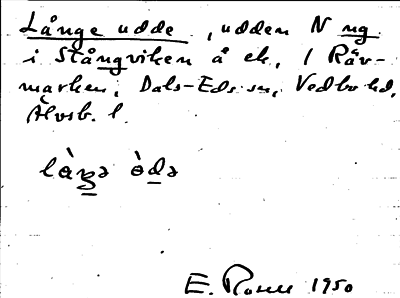 Långe udde, udden N ng
i Stångviken å ek, 1 Räv-
marken, Dals-Eds sn, Vedbo hd,
Älvsb. l.
làŋə òdə
E. 1950